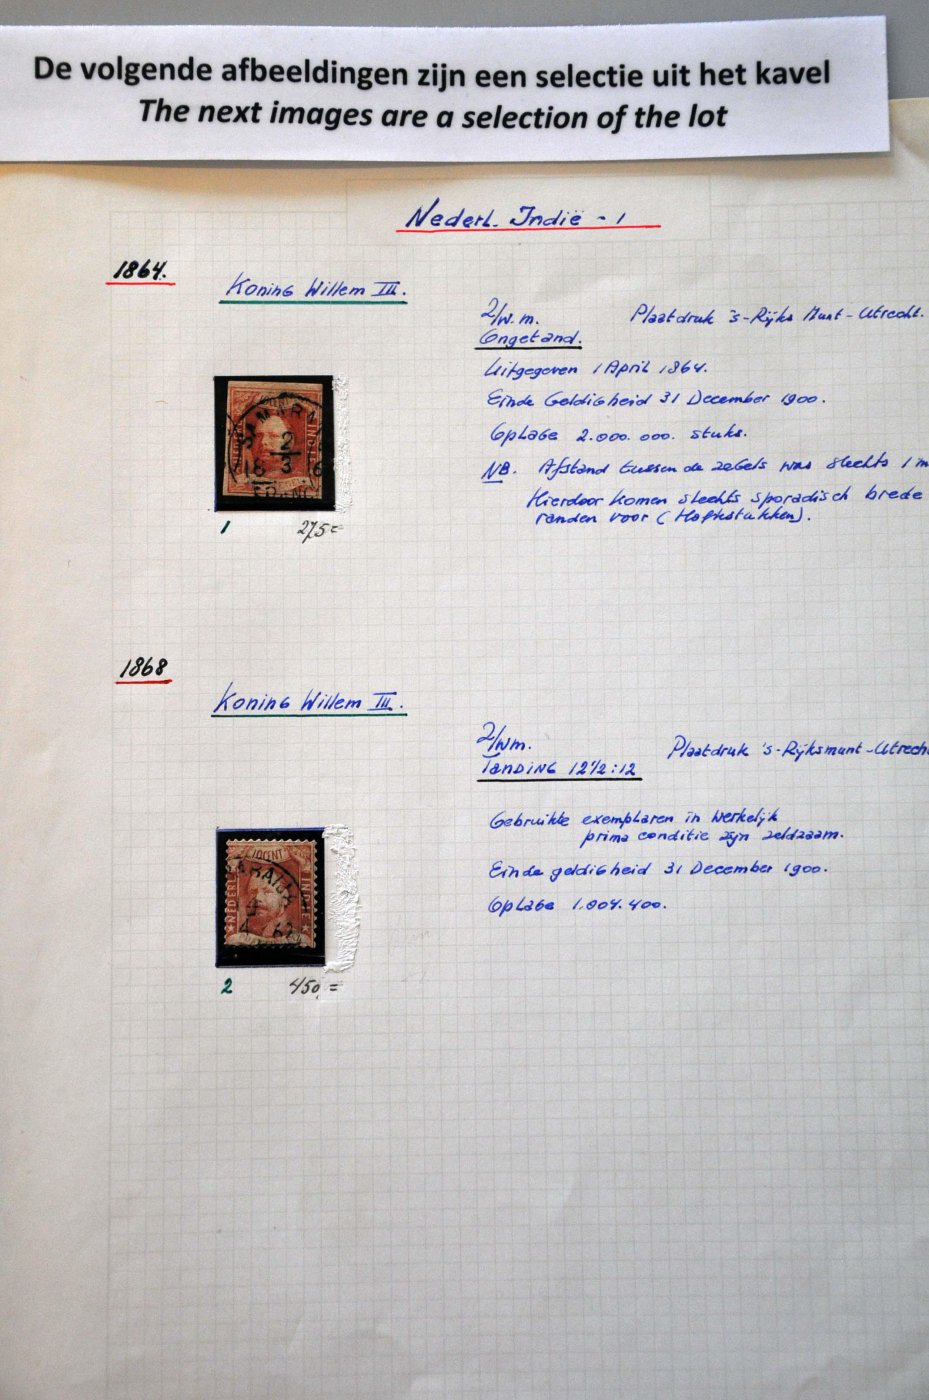 De volgende afbeeldingen zijn een selectie uit het kavel
The next images are a selection of the lot
Nederl. Indië - 1
1864.
Koning Willem III.
Z/w.m.
Plaatdruk 's-Rijks Munt-Utrecht.
Ongetand.
Uitgegeven 1 April 1864.
Einde Geldigheid 31 December 1900.
Oplage 2.000.000. stuks.
NB. Afstand tussen de zegels was slechts 1 m
Hierdoor komen slechts sporadisch brede
randen voor (Hoekstukken).
SAMARA
2
18 3 6
FRANCO
1
275=
1868
Koning Willem III.
Z/wm.
Plaatdruk 's-Rijksmunt-Utrecht
Tanding 12½:12
Gebruikte exemplaren in werkelijk
prima conditie zijn zeldzaam.
Einde geldigheid 31 December 1900.
Oplage 1.004.400.
NEDERL INDIE
2
450,=